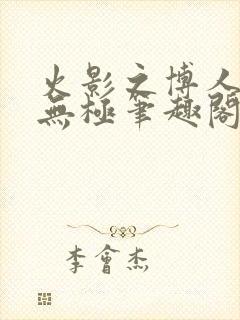 火影之博人
無極筆趣閣
李會杰